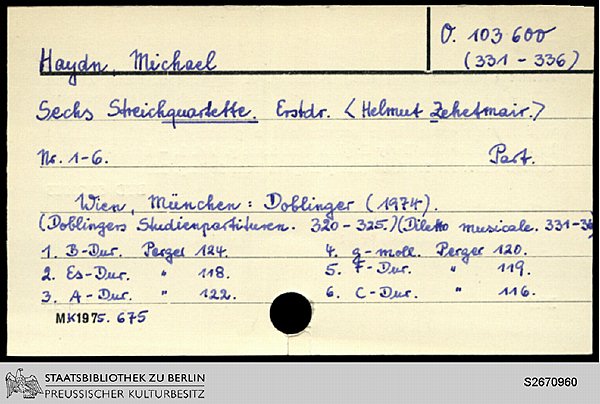 O. 103 600
Haydn, Michael
(331 - 336)
Sechs Streichquartette. Erstdr. < Helmut Zehetmair. >
Nr. 1-6. Part.
Wien, München: Doblinger (1974).
(Doblingers Studienpartituren. 320-325.)(Diletto musicale. 331-36
1. B-Dur. Perger 124. 4. g-moll. Perger 120.
2. Es-Dur. " 118. 5. F-Dur. " 119.
3. A-Dur. " 122. 6. C-Dur. " 116.
MK1975. 675
STAATSBIBLIOTHEK ZU BERLIN
PREUSSISCHER KULTURBESITZ
S2670960